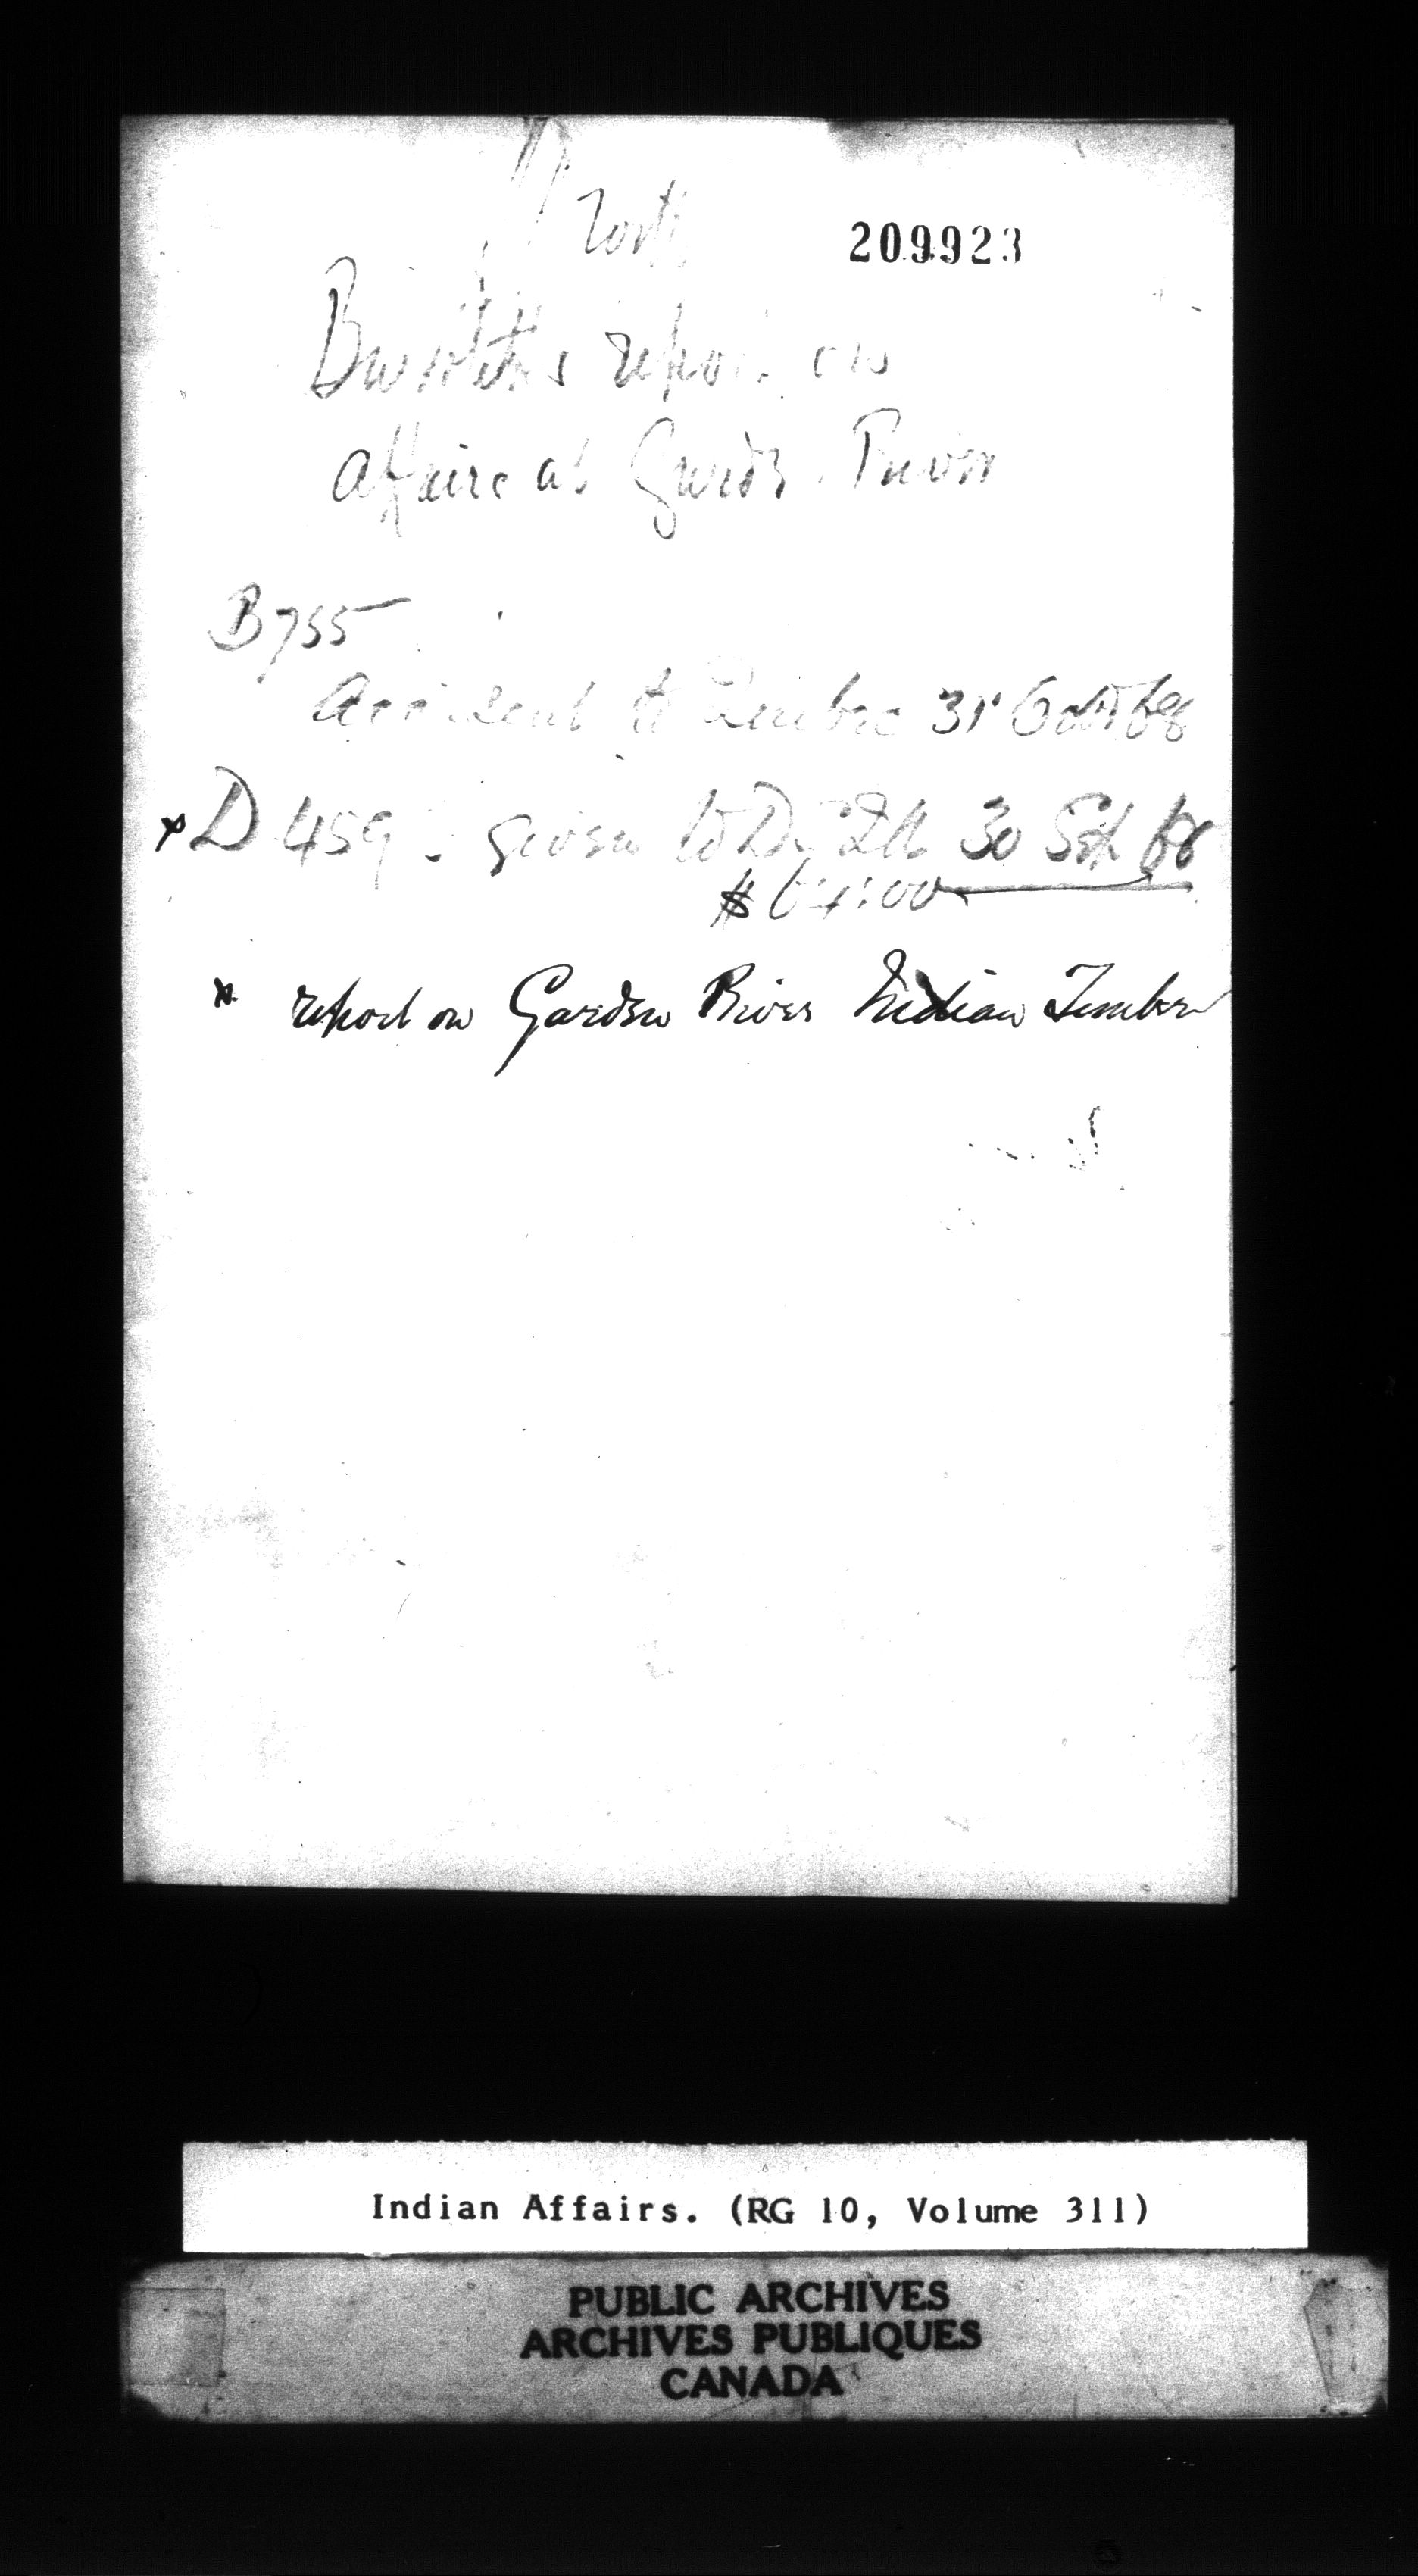 209923
report on
affairs at Garden River
B755
Accident to Quebec 31 October
x D 459 given to 30 Sept 68
$64.00
x report on Garden River Indian Timber
Indian Affairs. (RG 10, Volume 311)
PUBLIC ARCHIVES
ARCHIVES PUBLIQUES
CANADA